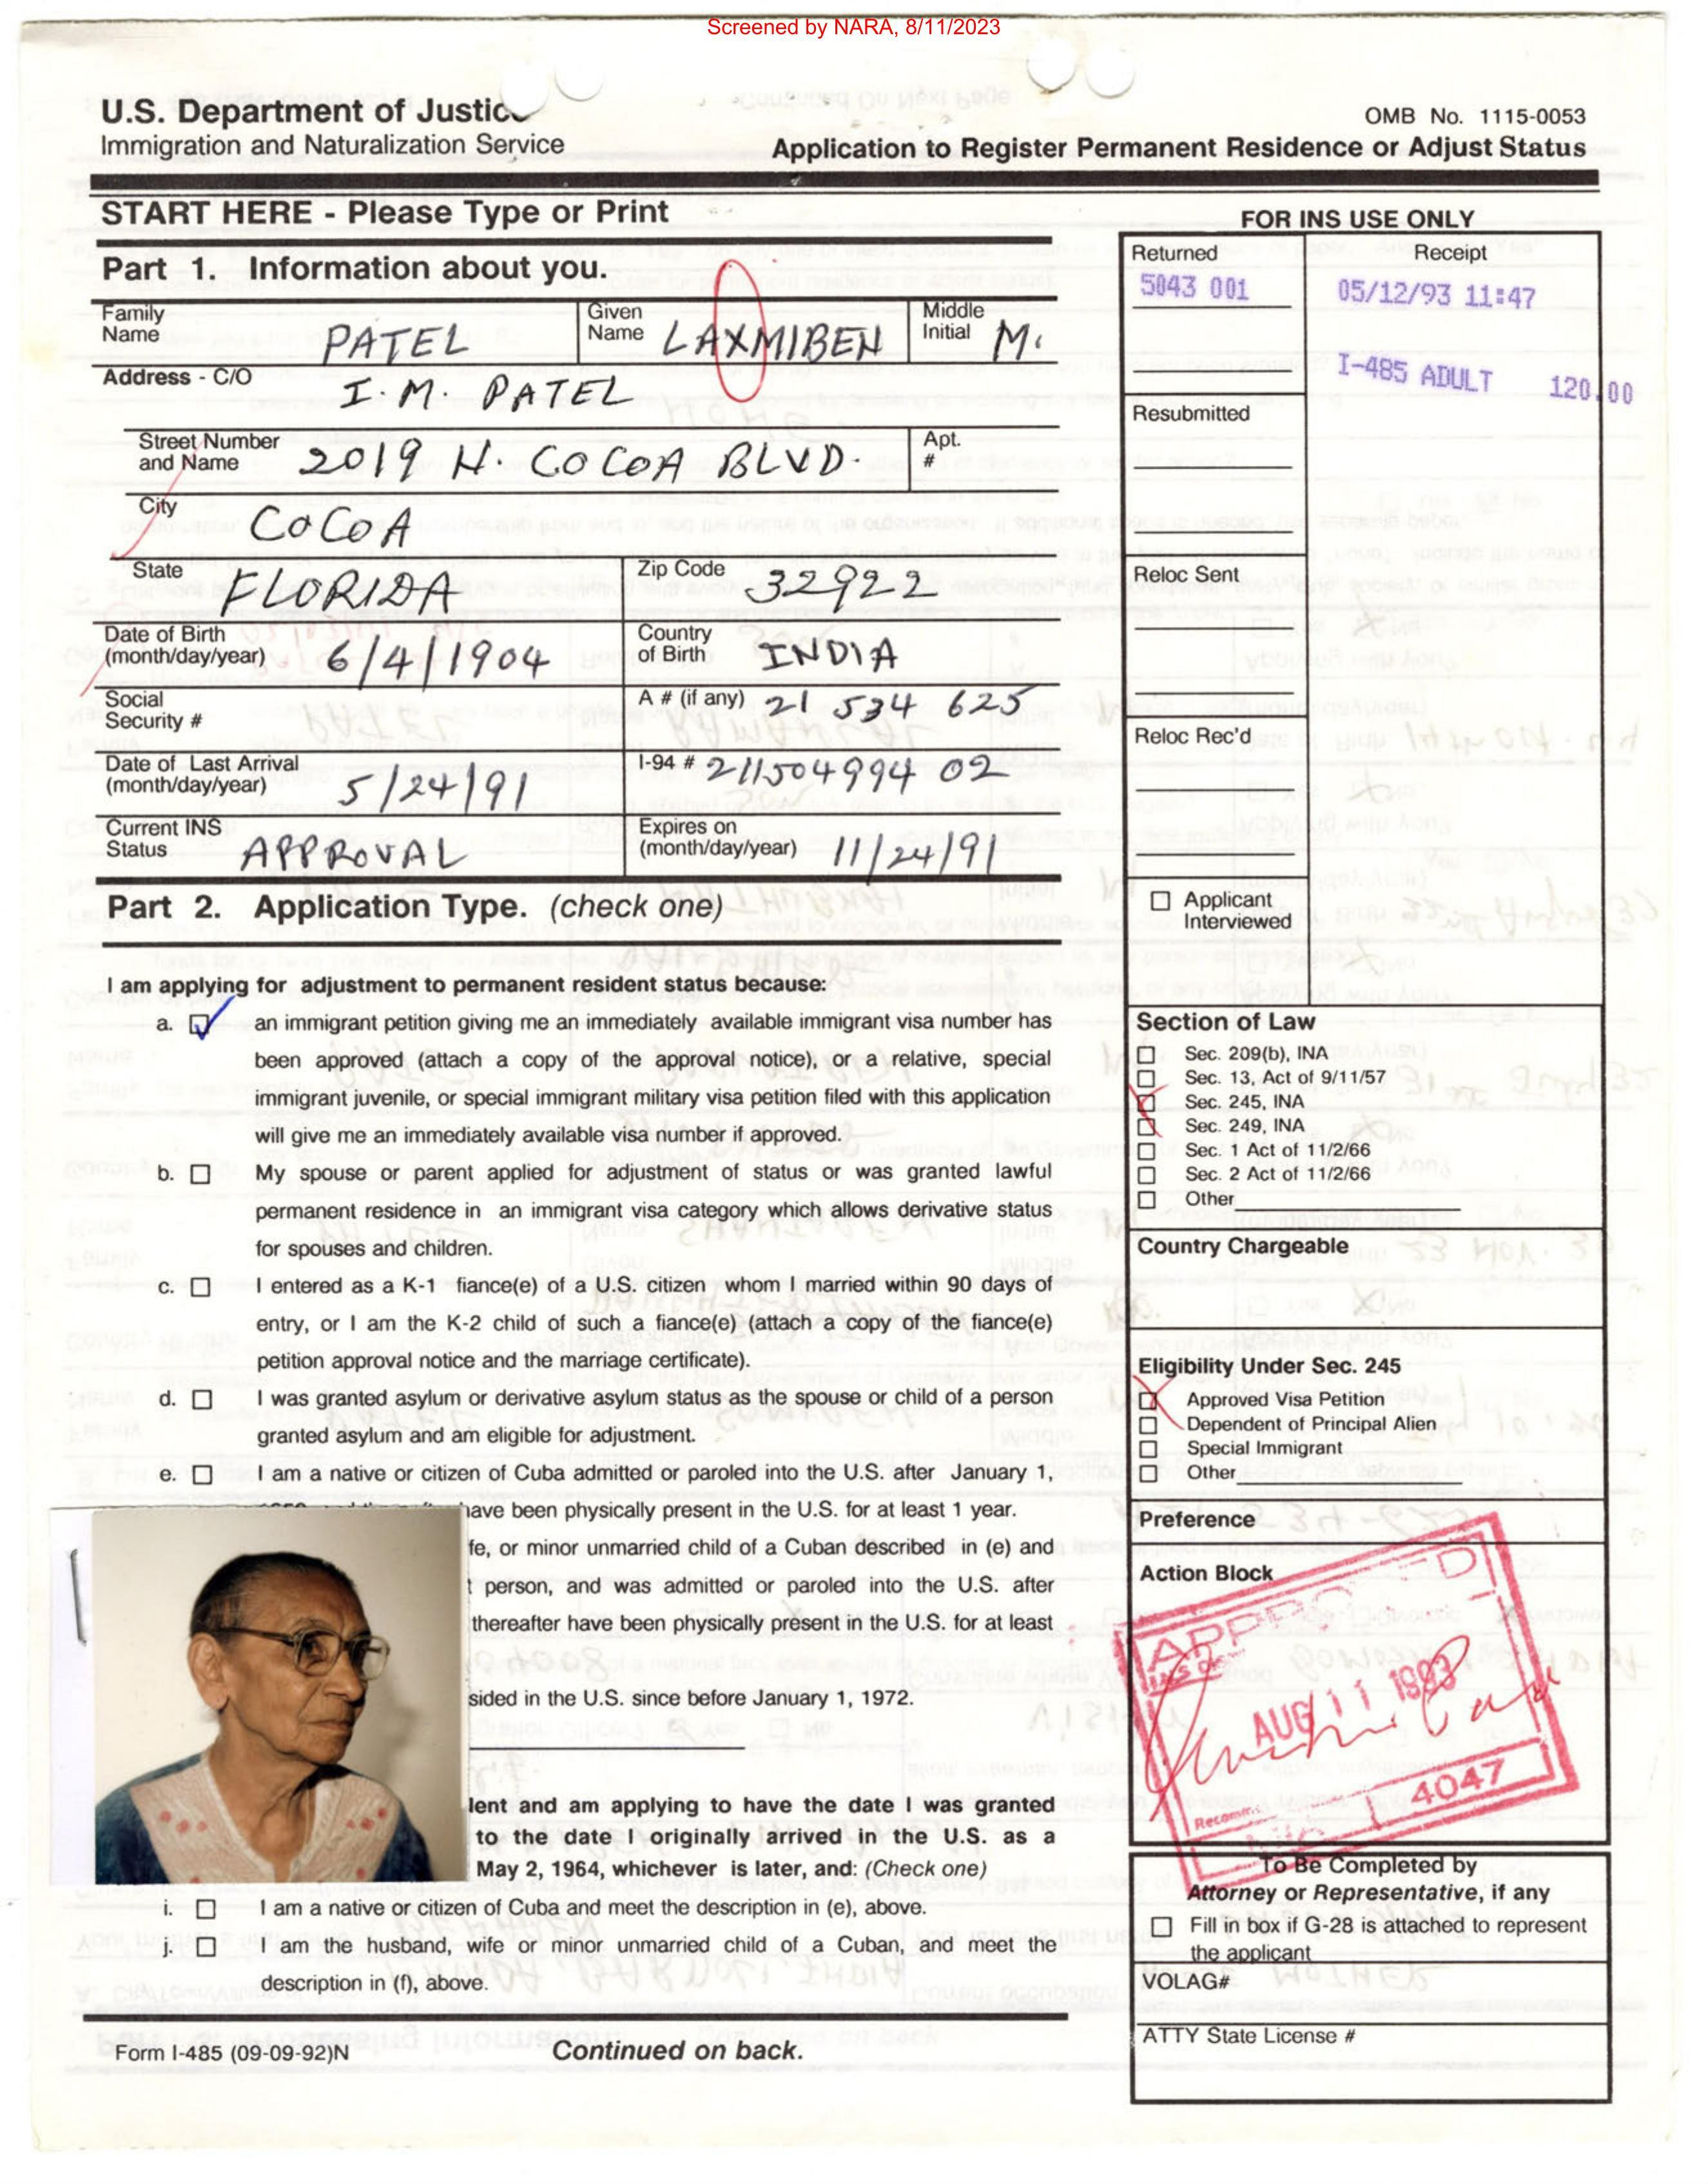 Screened by NARA, 8/11/2023
U.S. Department of Justice
Immigration and Naturalization Service
OMB No. 1115-0053
Application to Register Permanent Residence or Adjust Status
START HERE - Please Type or Print
Part 1. Information about you.
Family Name PATEL
Given Name LAXMIBEN
Middle Initial M.
Address - C/O I. M. PATEL
Street Number and Name 2019 N. COCOA BLVD.
Apt. #
City COCOA
State FLORIDA
Zip Code 32922
Date of Birth (month/day/year) 6/4/1904
Country of Birth INDIA
Social Security #
A # (if any) 21 534 625
Date of Last Arrival (month/day/year) 5/24/91
I-94 # 211504994 02
Current INS Status APPROVAL
Expires on (month/day/year) 11/24/91
Part 2. Application Type. (check one)
I am applying for adjustment to permanent resident status because:
a. an immigrant petition giving me an immediately available immigrant visa number has
been approved (attach a copy of the approval notice), or a relative, special
immigrant juvenile, or special immigrant military visa petition filed with this application
will give me an immediately available visa number if approved.
b. My spouse or parent applied for adjustment of status or was granted lawful
permanent residence in an immigrant visa category which allows derivative status
for spouses and children.
c. I entered as a K-1 fiance(e) of a U.S. citizen whom I married within 90 days of
entry, or I am the K-2 child of such a fiance(e) (attach a copy of the fiance(e)
petition approval notice and the marriage certificate).
d. I was granted asylum or derivative asylum status as the spouse or child of a person
granted asylum and am eligible for adjustment.
e. I am a native or citizen of Cuba admitted or paroled into the U.S. after January 1,
have been physically present in the U.S. for at least 1 year.
fe, or minor unmarried child of a Cuban described in (e) and
t person, and was admitted or paroled into the U.S. after
thereafter have been physically present in the U.S. for at least
sided in the U.S. since before January 1, 1972.
lent and am applying to have the date I was granted
to the date I originally arrived in the U.S. as a
May 2, 1964, whichever is later, and: (Check one)
i. I am a native or citizen of Cuba and meet the description in (e), above.
j. I am the husband, wife or minor unmarried child of a Cuban, and meet the
description in (f), above.
Form I-485 (09-09-92)N
Continued on back.
FOR INS USE ONLY
Returned
Receipt
5043 001
05/12/93 11:47
I-485 ADULT 120.00
Resubmitted
Reloc Sent
Reloc Rec'd
Applicant Interviewed
Section of Law
Sec. 209(b), INA
Sec. 13, Act of 9/11/57
Sec. 245, INA
Sec. 249, INA
Sec. 1 Act of 11/2/66
Sec. 2 Act of 11/2/66
Other
Country Chargeable
Eligibility Under Sec. 245
Approved Visa Petition
Dependent of Principal Alien
Special Immigrant
Other
Preference
Action Block
APPROVED
AUG 11 1993
4047
Recomm.
To Be Completed by
Attorney or Representative, if any
Fill in box if G-28 is attached to represent
the applicant
VOLAG#
ATTY State License #